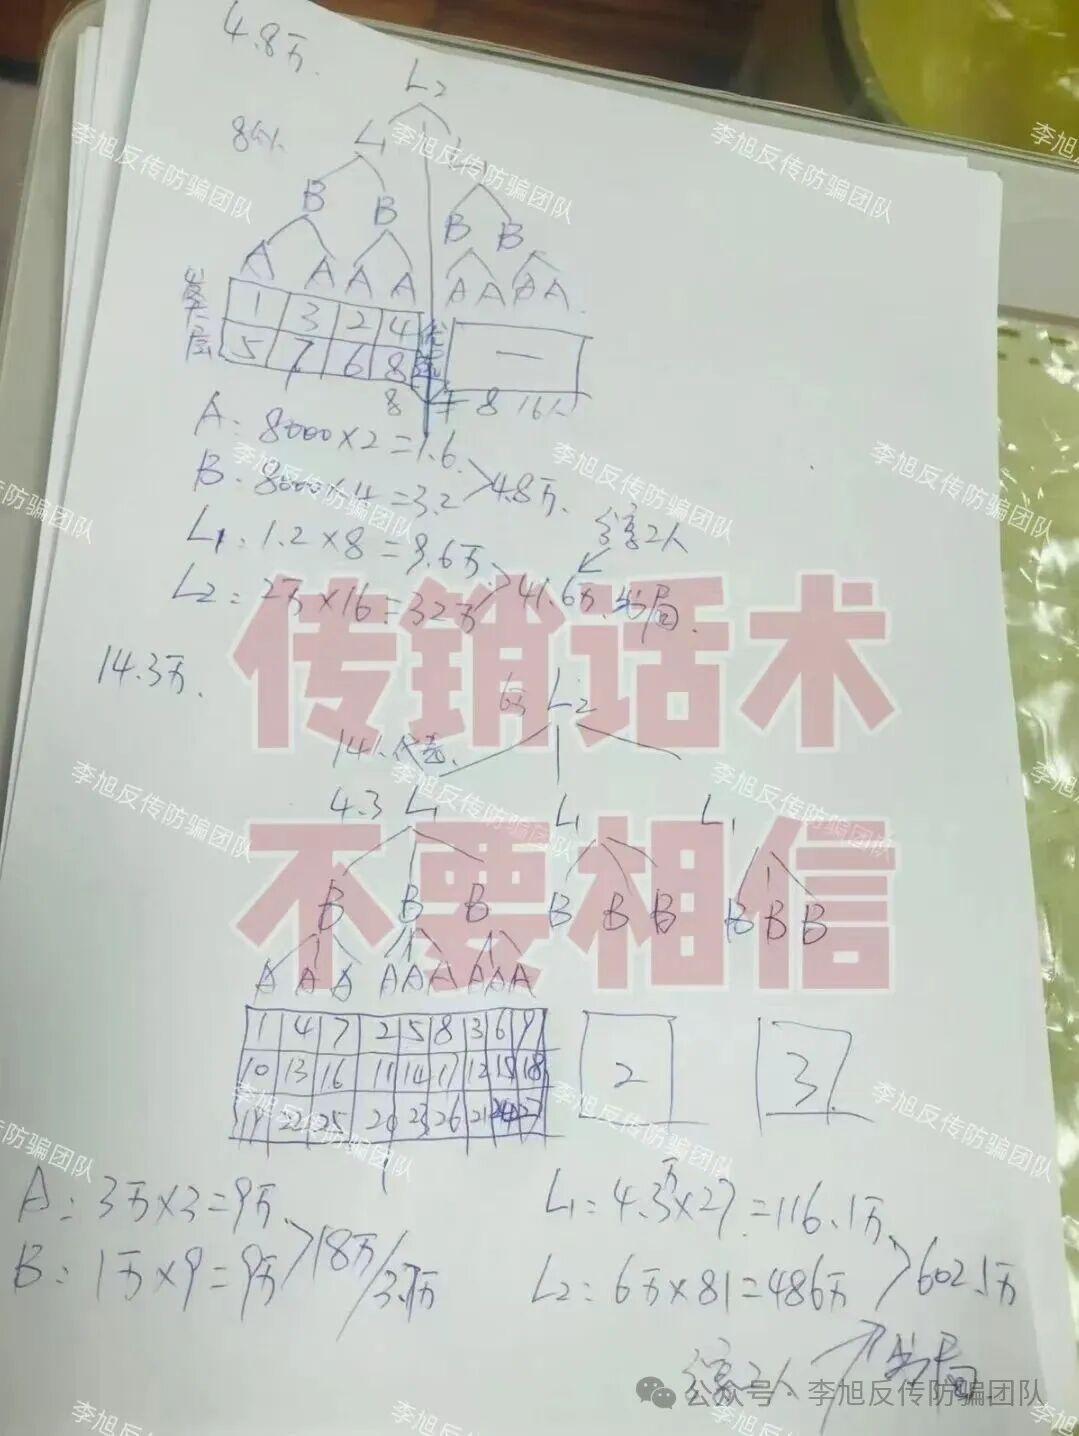 4.8万.
L2
L1
B B B B
A A A A A A A A
1 3 2 4
5 7 6 8
一
8 8 16人
A: 8000×2=1.6
B: 8000×4=3.2
4.8万.
L1: 1.2×8=9.6万
L2: 2万×16=32万
41.6万 出局.
分享2人
传销话术
不要相信
14.3万.
L2
4.3 L1 L1 L1
B B B B B B B B B
A A A A A A A A A
1 4 7 2 5 8 3 6 9
10 13 16 11 14 17 12 15 18
19 22 25 20 23 26 21 24 27
2
3
A: 3万×3=9万
B: 1万×9=9万
18万/3.7万
L1: 4.3万×27=116.1万
L2: 6万×81=486万
602.1万
分享2人 出局
公众号 · 李旭反传防骗团队
李旭反传防骗团队